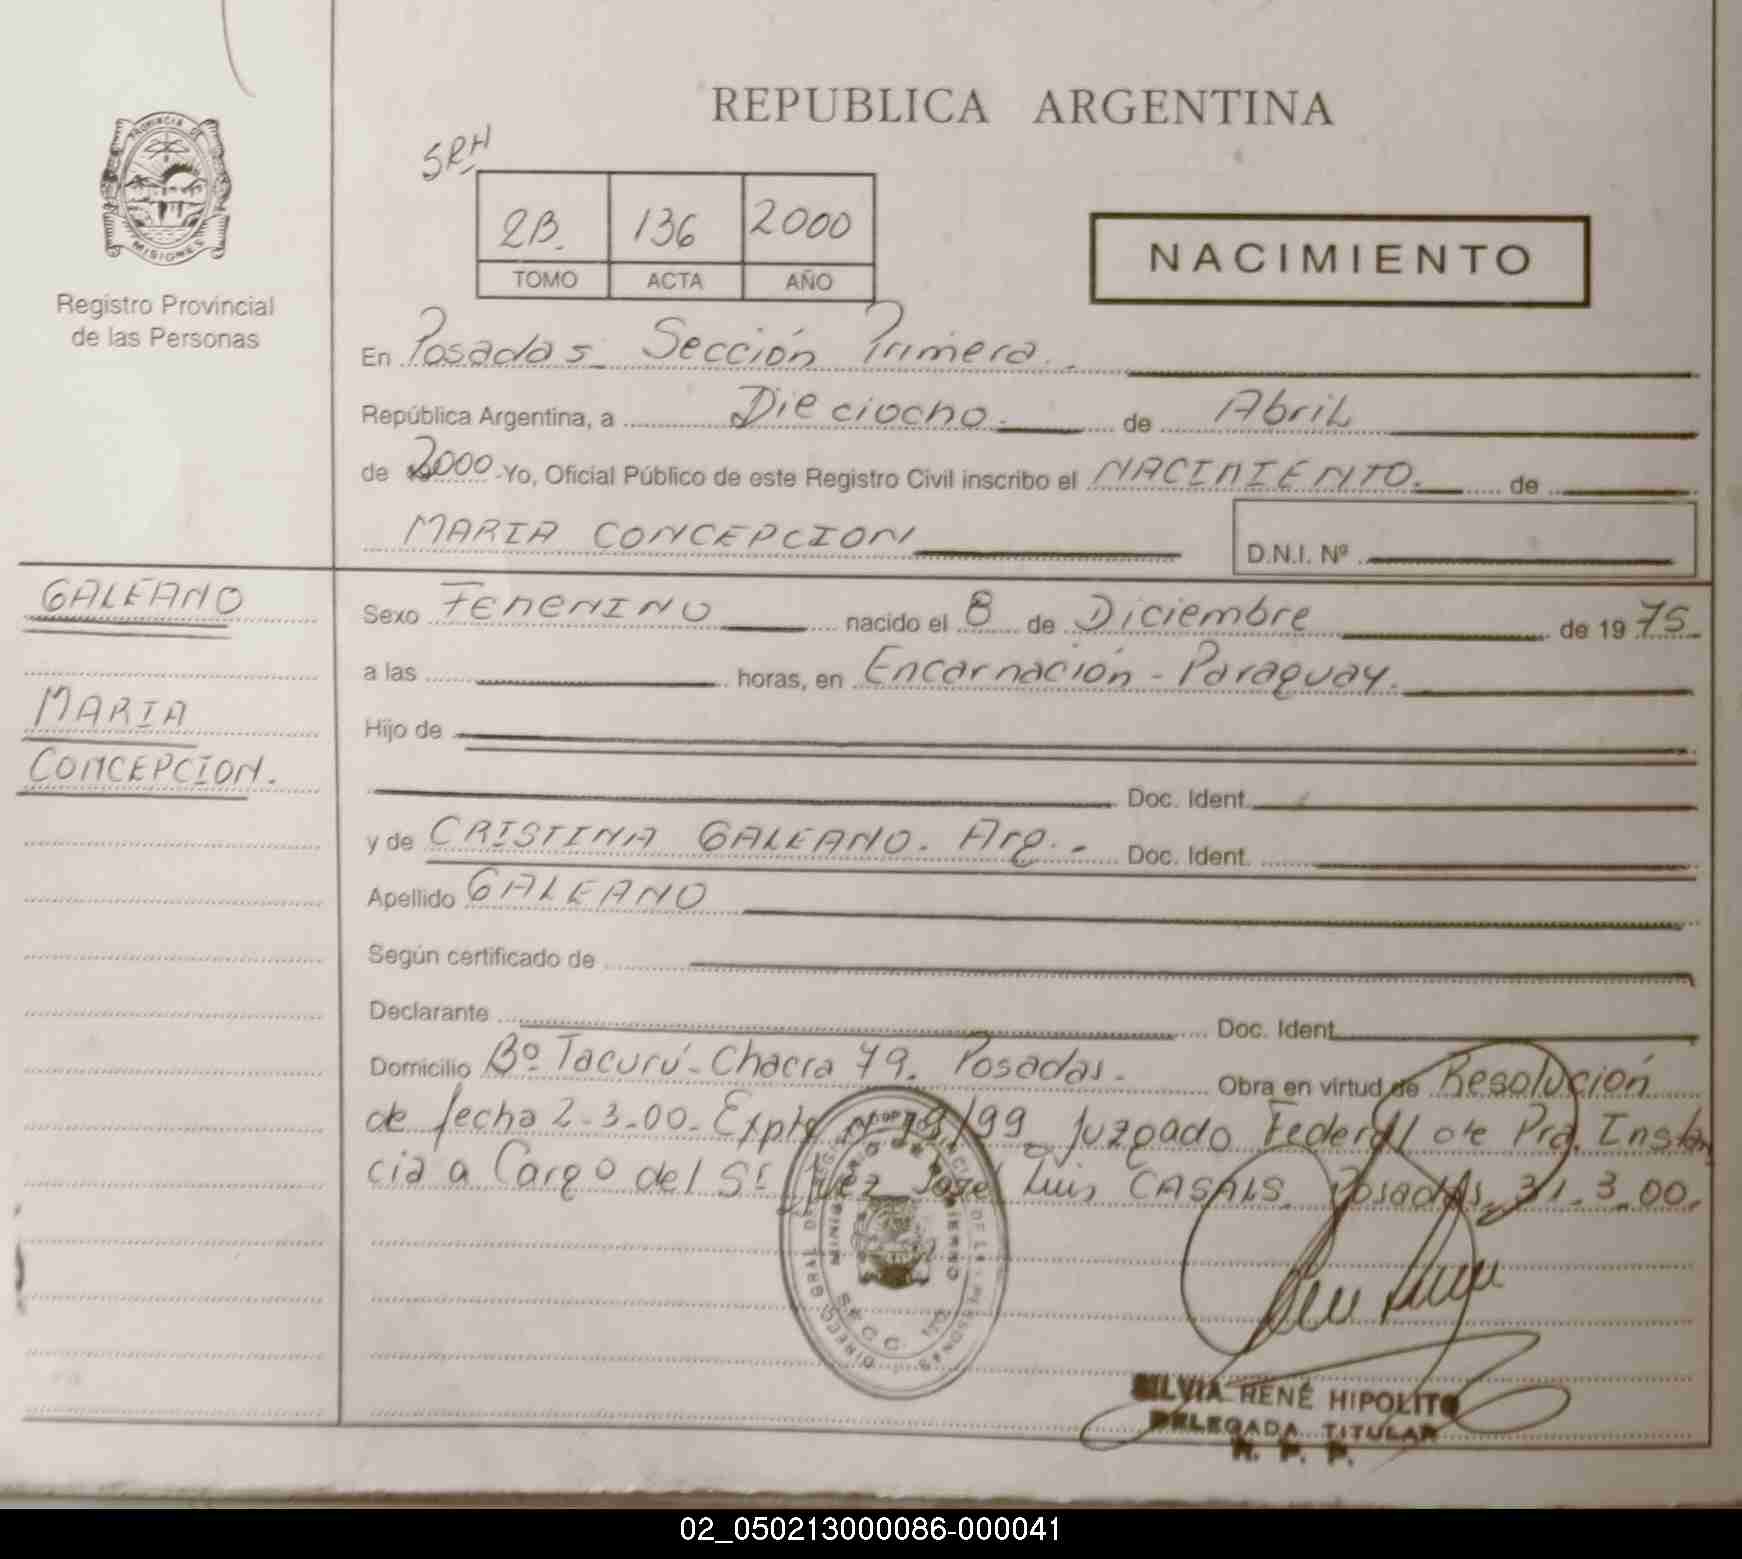 REPUBLICA ARGENTINA
PROVINCIA DE
MISIONES
Registro Provincial
de las Personas
SRH
2B. 136 2000
TOMO ACTA AÑO
NACIMIENTO
En Posadas Sección Primera.
República Argentina, a Dieciocho. de Abril
de 2000 Yo, Oficial Público de este Registro Civil inscribo el NACIMIENTO. de
MARIA CONCEPCION D.N.I. Nº
GALEANO
MARIA
CONCEPCION.
Sexo FEMENINO nacido el 8 de Diciembre de 19 75
a las horas, en Encarnación - Paraguay.
Hijo de
Doc. Ident.
y de CRISTINA GALEANO. Arg. - Doc. Ident.
Apellido GALEANO
Según certificado de
Declarante Doc. Ident.
Domicilio Bº Tacurú - Chacra 79. Posadas. Obra en virtud de Resolución
de fecha 2-3-00. Expte /99 Juzgado Federal de Pra. Instan
cia a Cargo del Sr. Juez José Luis CASALS. Posadas, 31-3-00.
SECC. 1ra
SILVIA RENÉ HIPOLITO
DELEGADA TITULAR
R. P. P.
02_050213000086-000041